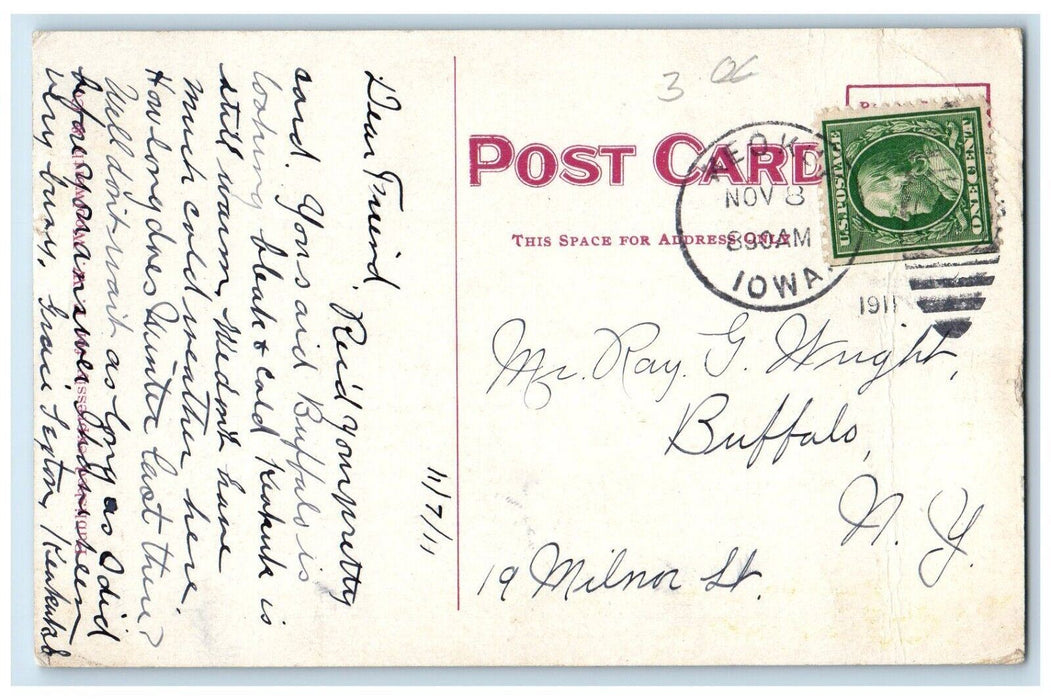 11/7/11
Dear Friend,
Reid your pretty
card. You said Buffalo is
looking bleak & cold Keokuk is
still warm, We dont have
much cold weather here.
How long does Winter last there?
Well dont wait as long as I did
before you answer, have been
very busy, Sexton, Keokuk
3 0c
POST CARD
THIS SPACE FOR ADDRESS ONLY
KEOKUK
NOV 8
830AM
IOWA.
1911
U.S. POSTAGE
ONE CENT
Mr. Ray. G. Wright,
Buffalo,
N. Y.
19 Milnor St.